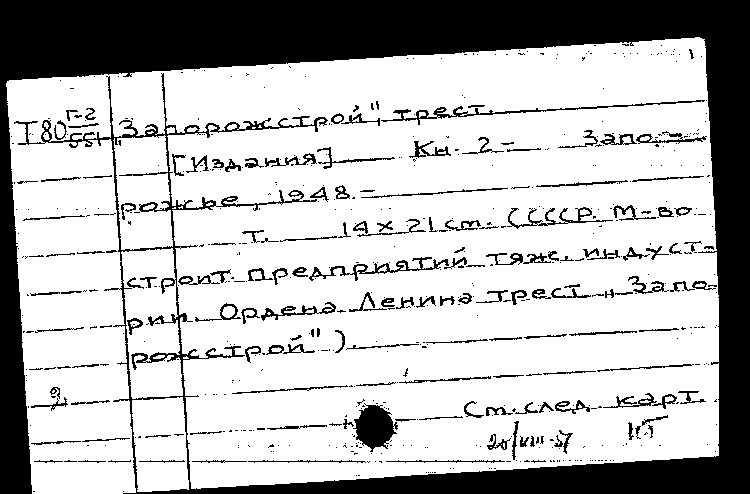 1
Т80 Г-2/551 „Запорожстрой", трест.
[Издания] Кн. 2 - Запо-
рожье, 1948. -
т. 14 x 21 см. (СССР. М-во
строит. предприятий тяж. индуст-
рии. Ордена Ленина трест „Запо-
рожстрой").
2
См. след. карт.
20/VIII-57 НТ